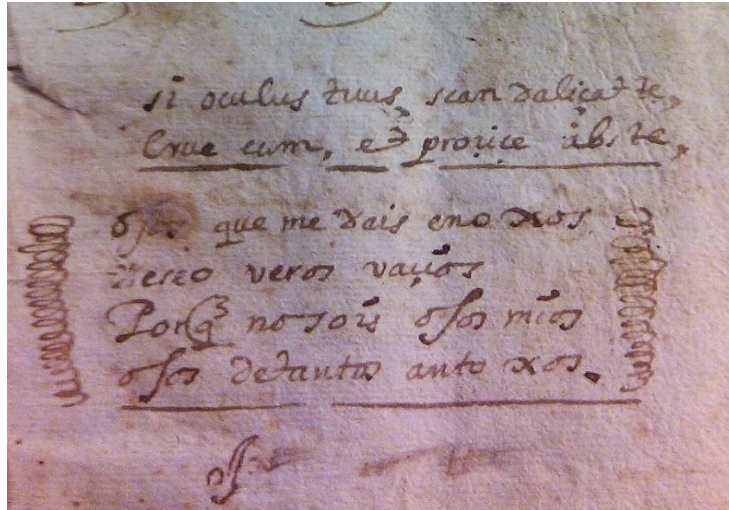 si oculus tuus, scandaliçat te,
Erue eum, et proiice abs te,
que me dais enoxos
deseo veros vaçios
Porq no sois ojos mios
ojos de tantos antoxos.